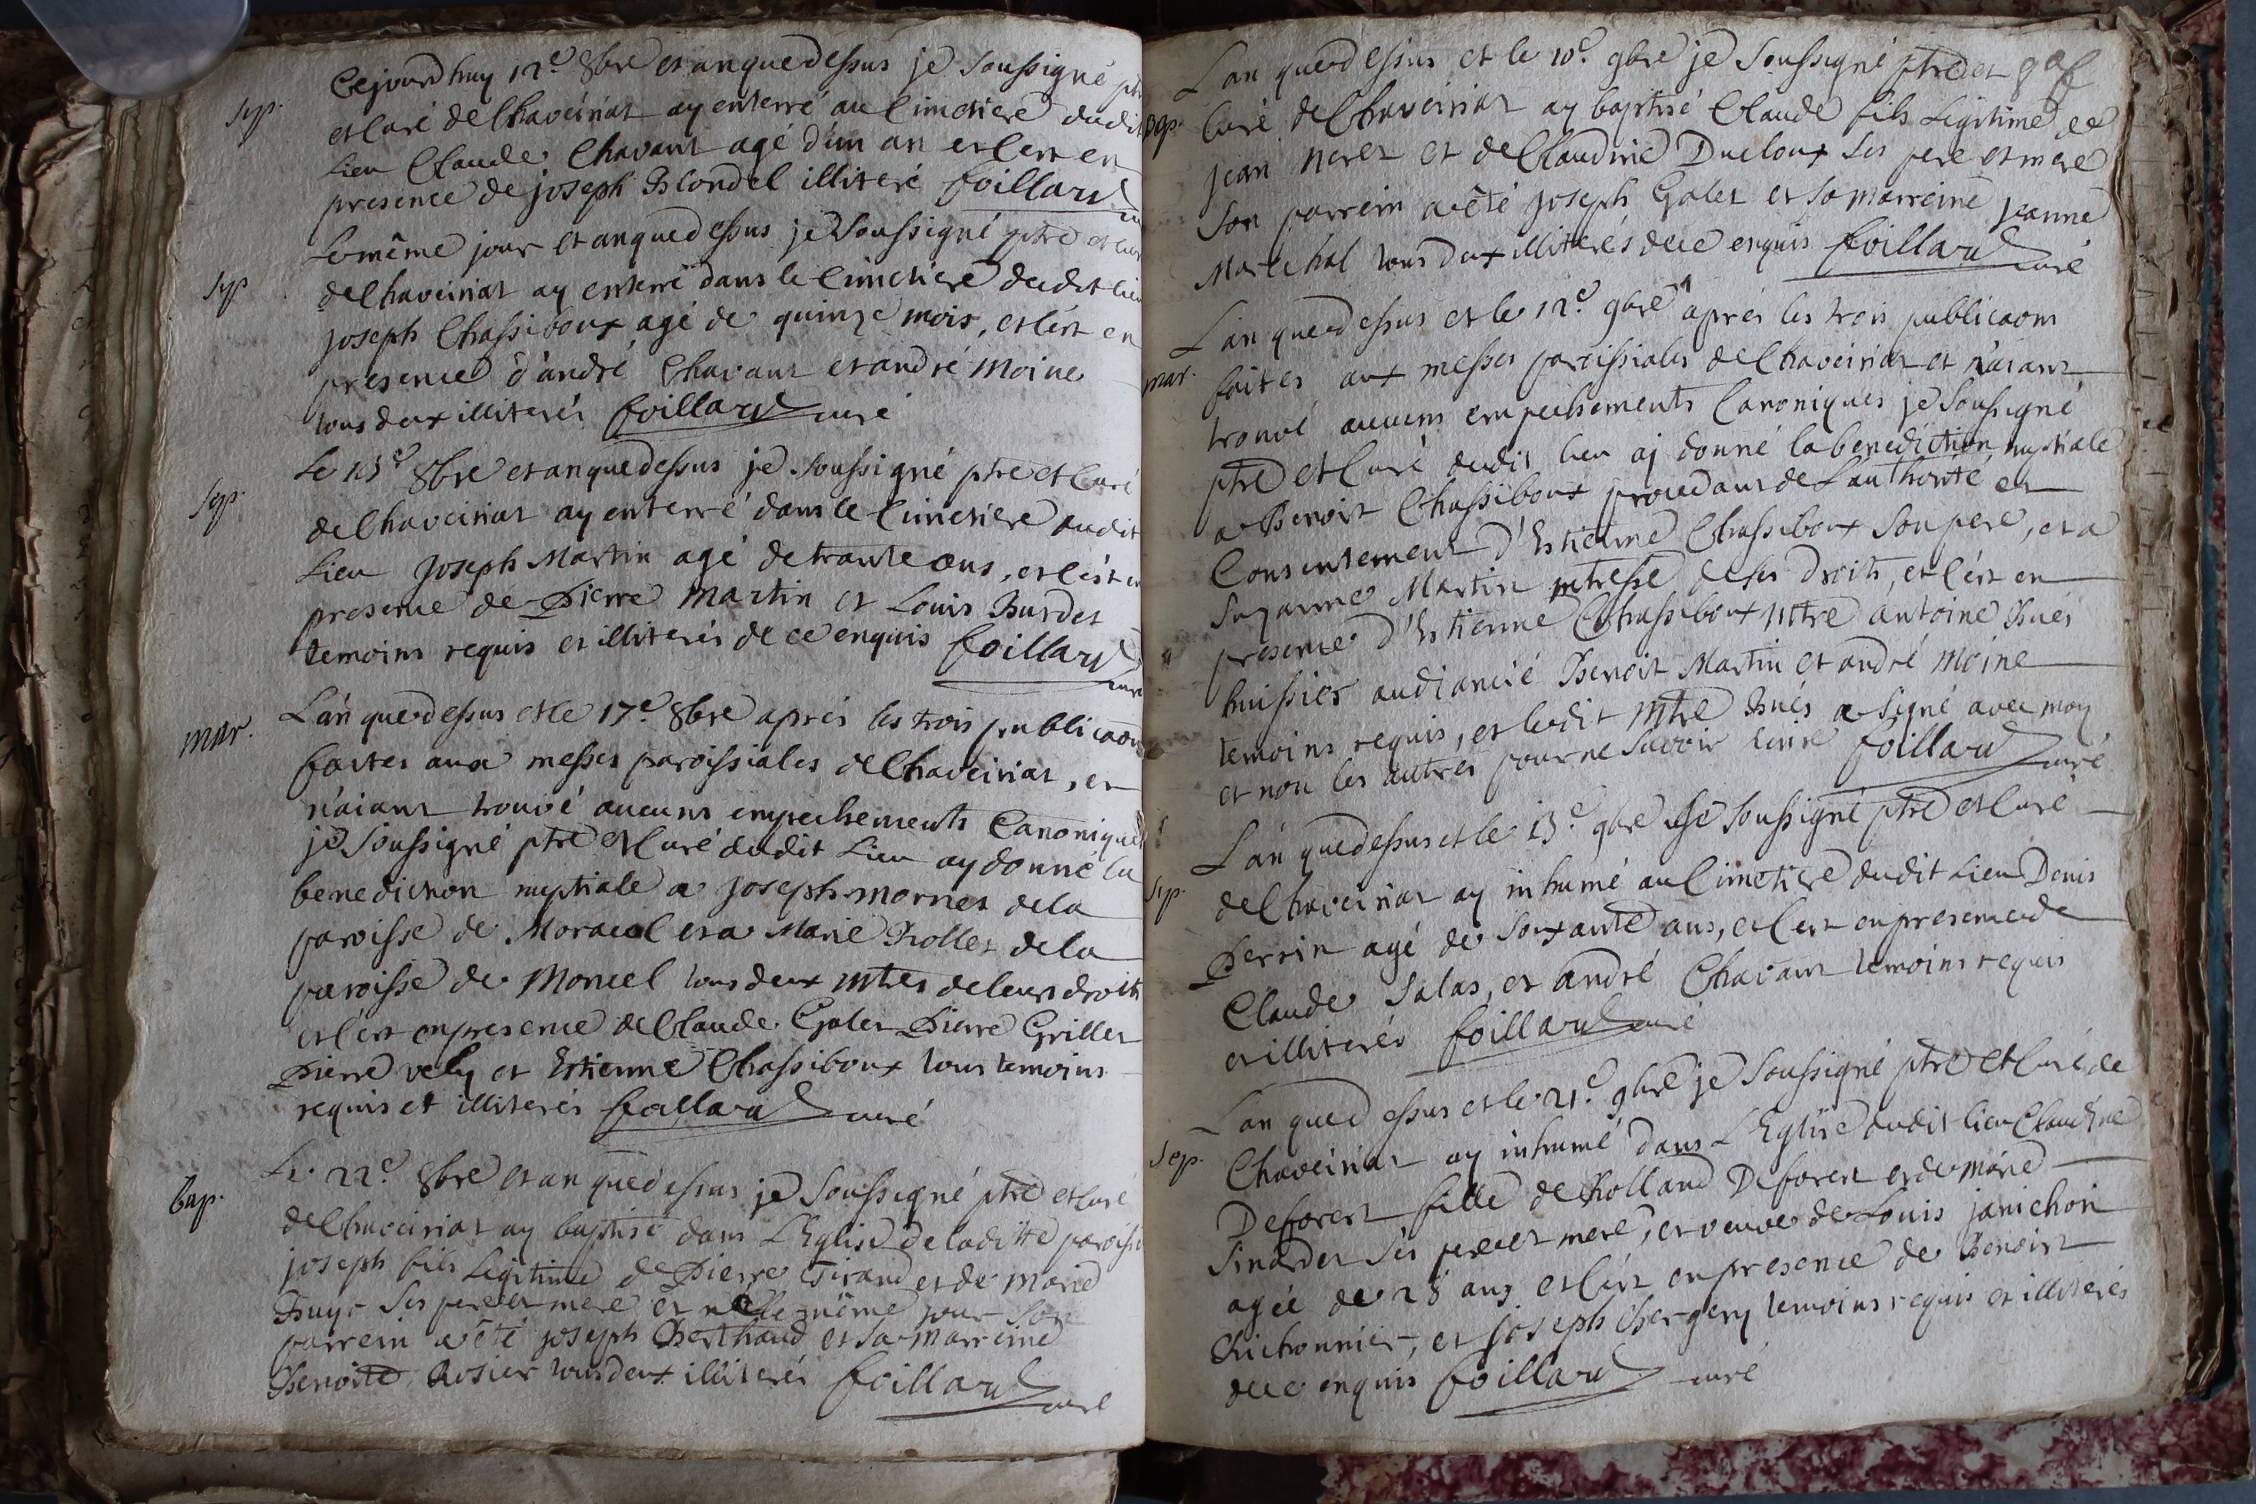 Cejourdhuy 12e 8bre et an que dessus je soussigné ptre
sep.
et Curé de Chaveiriat ay enterré au Cimetiere dudit
Lieu Claude Chavant agé d'un an et c'est en
presence de joseph Blondel illiteré foillard curé
Le même jour et an que dessus je soussigné ptre et curé
sep
de Chaveiriat ay enterré dans le Cimetiere dudit lieu
joseph Chassiboux agé de quinze mois, et c'est en
presence d'andré Chavant et andré Moine
tous deux illiterés foillard curé
Le 13e 8bre et an que dessus je soussigné ptre et Curé
sep.
de Chaveiriat ay enterré dans le Cimetiere dudit
Lieu joseph Martin agé de trante ans, et c'est en
presence de Pierre Martin et Louis Burdet
temoins requis et illiterés de ce enquis foillard curé
L'an que dessus et le 17e 8bre aprés les trois publicaons
mar.
faites aux messes paroissiales de Chaveiriat, et
n'aiant trouvé aucuns empechements Canoniques
je soussigné ptre et Curé dudit Lieu ay donné la
benediction nuptiale a joseph mornet de la
paroisse de et a Marie Rollet de la
paroisse de Moncel tous deux mtres de leurs droits
et c'est en presence de Claude Galet Pierre Grillet
Pierre vely et Estienne Chassiboux tous temoins
requis et illiterés foillard curé
Le 22e 8bre et an que dessus je soussigné ptre et Curé
bap.
de Chaveiriat ay baptisé dans L'Eglise de laditte paroisse
joseph fils Legitime de Pierre Tirand et de Marie
ses pere et mere et né le même jour son
parrein a êté joseph Berthaud et sa marreine
Benoite Rosier tous deux illiterés foillard curé
L'an que dessus et le 10e 9bre je soussigné ptre et
bap.
Curé de Chaveiriat ay baptisé Claude fils Legitime de
jean Neret et de Claudine Ducloux ses pere et mere
son parrein a êté joseph Galet et sa marreine jeanne
Marechal tous deux illiterés de ce enquis foillard curé
L'an que dessus et le 12e 9bre aprés les trois publicaons
mar.
faites aux messes paroissiales de Chaveiriat et n'aiant
trouvé aucuns empechements Canoniques je soussigné
ptre et Curé dudit lieu aj donné la benediction nuptiale
a Benoit Chassiboux procedant de L'authorité et
Consentement d'Estienne Chassiboux son pere, et a
Suzanne Martin mtresse de ses droits, et c'est en
presence d'Estienne Chassiboux mtre antoine Bués
huissier audiancié Benoit Martin et andré Moine
temoins requis, et ledit mtre Bués a signé avec moy
et non les autres pour ne savoir ecrire foillard curé
L'an que dessus et le 13e 9bre je soussigné ptre et Curé
sep.
de Chaveiriat ay inhumé au Cimetiere dudit Lieu Denis
Perrin agé de soixante ans, et c'est en presence de
Claude Salas, et andré Chavant temoins requis
et illiterés foillard curé
L'an que dessus et le 21e 9bre je soussigné ptre et Curé de
sep.
Chaveiriat ay inhumé dans L'Eglise dudit lieu Claudine
Deforest fille de Rolland Deforest et de marie
Sinardet ses pere et mere, et veuve de Louis janichon
agée de 28 ans et c'est en presence de Benoist
Richonnier, et joseph Bergery temoins requis et illiterés
de ce enquis foillard curé